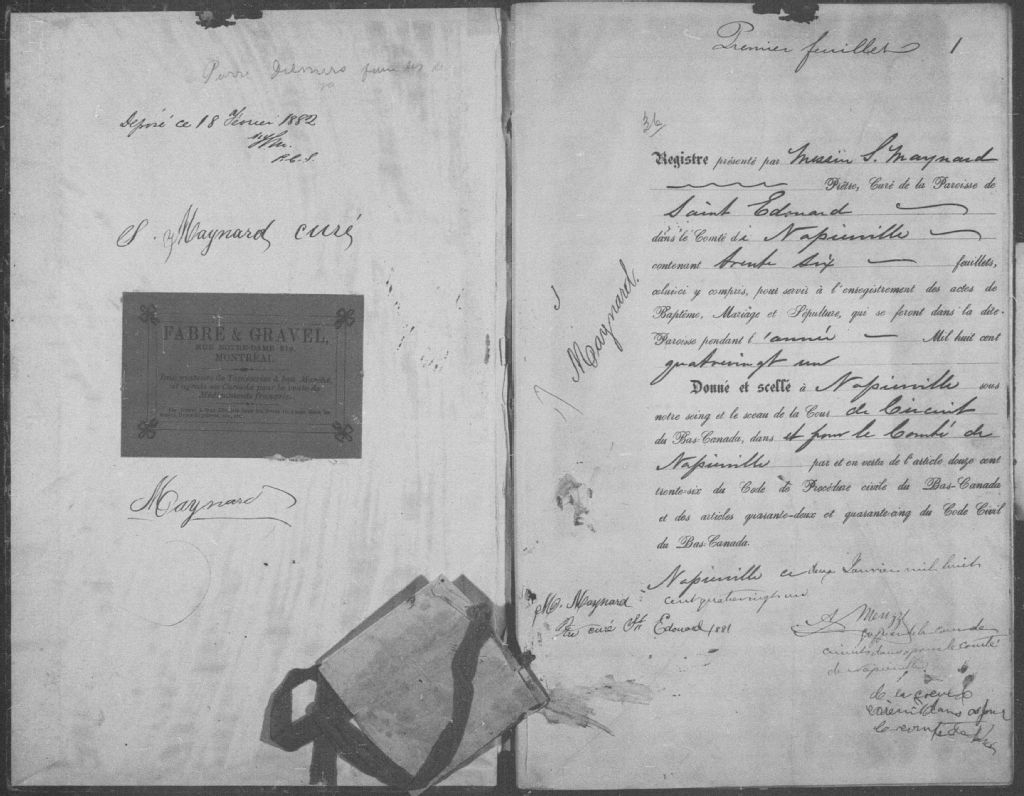 Déposé ce 18 Février 1882
P.C.S.
S. Maynard curé
FABRE & GRAVEL,
RUE NOTRE-DAME 219,
MONTRÉAL.
Importateurs de Tapisseries à bon Marché,
et agents au Canada pour la vente de
Médicaments français.
Maynard
Premier feuillet 1
36
Registre présenté par Messire S. Maynard
Prêtre, Curé de la Paroisse de
Saint Edouard
dans le Comté de Napierville
contenant trente six feuillets,
celui-ci y compris, pour servir à l'enregistrement des actes de
Baptême, Mariage et Sépulture, qui se feront dans la dite
Paroisse pendant l'année Mil huit cent
quatrevingt un
Donné et scellé à Napierville sous
notre seing et le sceau de la Cour de Circuit
du Bas-Canada, dans et pour le Comté de
Napierville par et en vertu de l'article douze cent
trente-six du Code de Procédure civile du Bas-Canada
et des articles quarante-deux et quarante-cinq du Code Civil
du Bas-Canada.
Maynard
Napierville ce deux Janvier mil huit
cent quatrevingt un
M. Maynard
curé St Edouard 1881
circuit dans et pour le comté
de Napierville
de la cour de
circuit dans et pour
le comté de